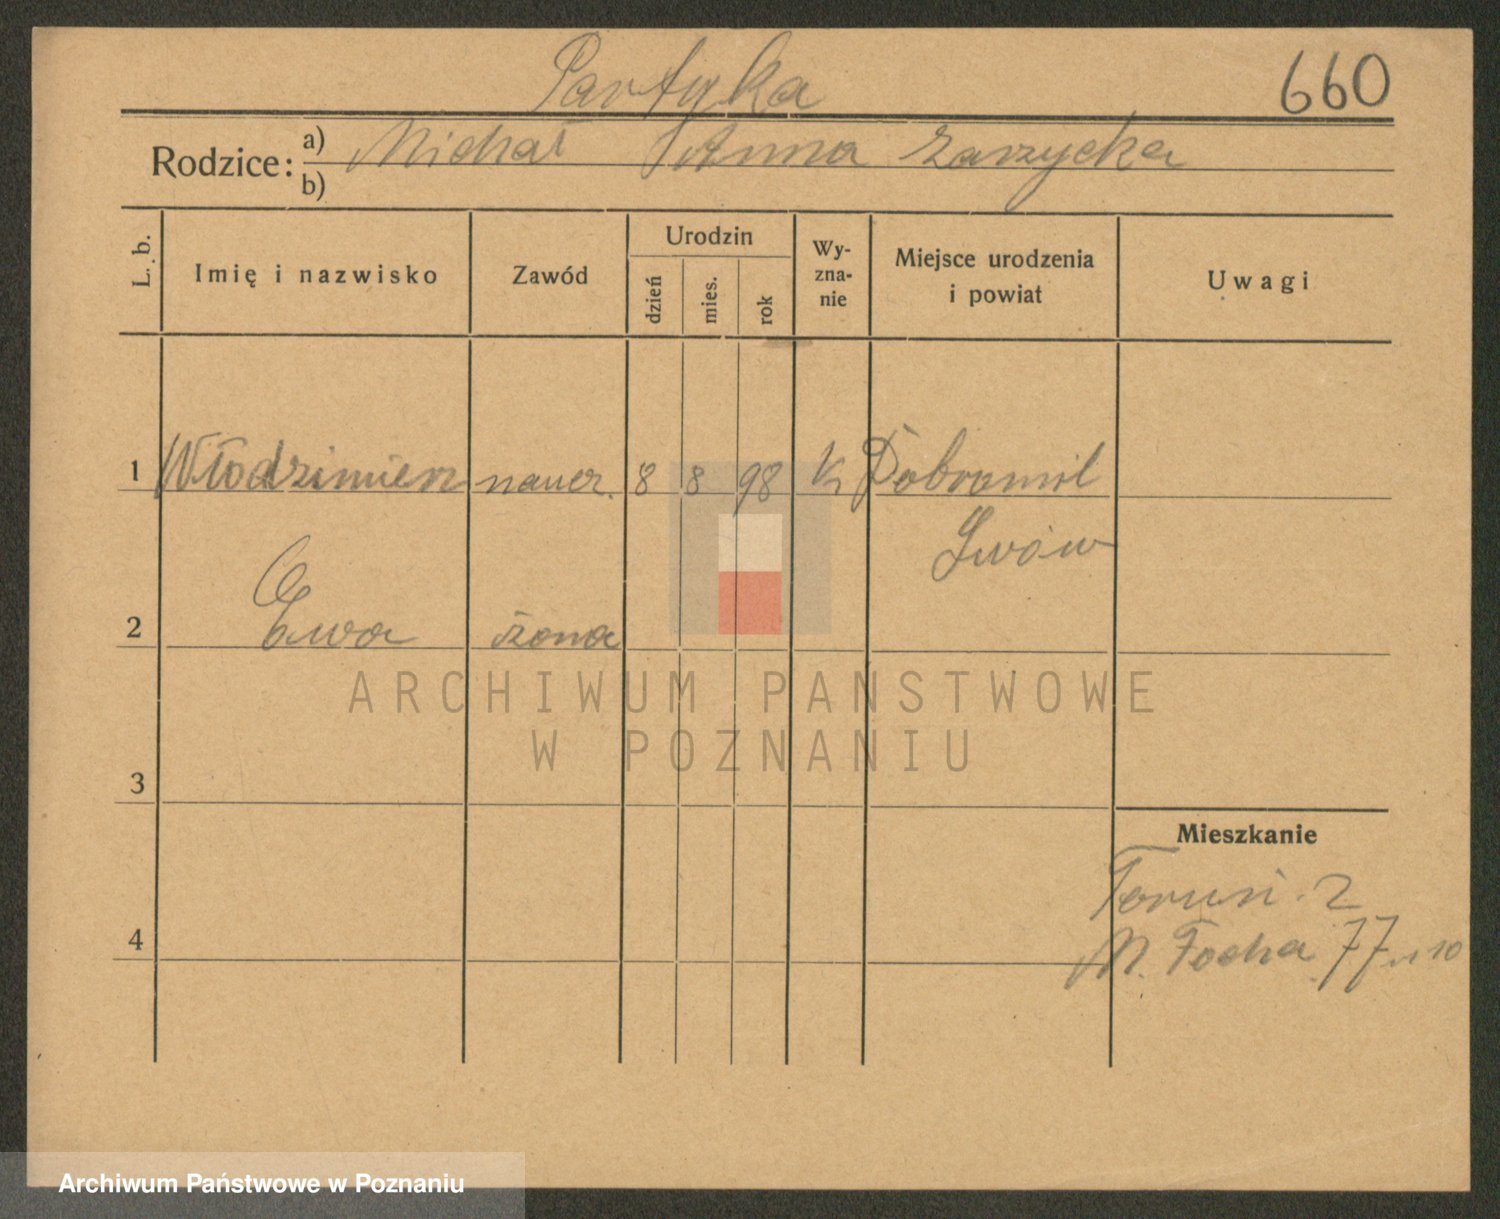 Partyka
660
Rodzice: a) Michał Anna Zarzycka
b)
L. b. Imię i nazwisko Zawód Urodzin dzień mies. rok Wy-zna-nie Miejsce urodzenia i powiat Uwagi
1 Włodzimierz naucz. 8 8 98 Dobromil
Lwów
2 Ewa żona
ARCHIWUM PAŃSTWOWE
W POZNANIU
3
Mieszkanie
Toruń 2
4 M. Focha 77 10
Archiwum Państwowe w Poznaniu